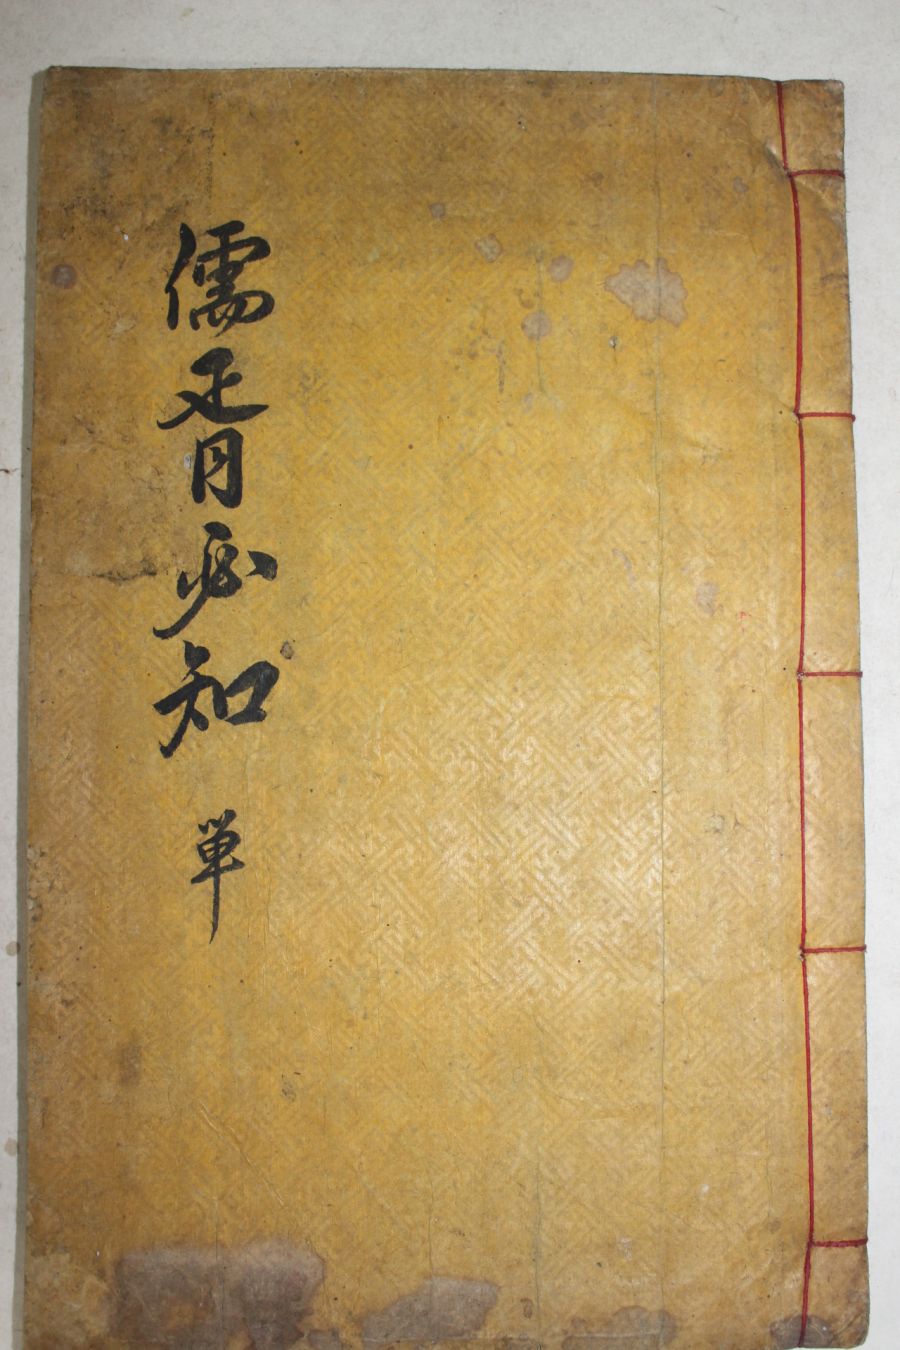 儒胥必知 単